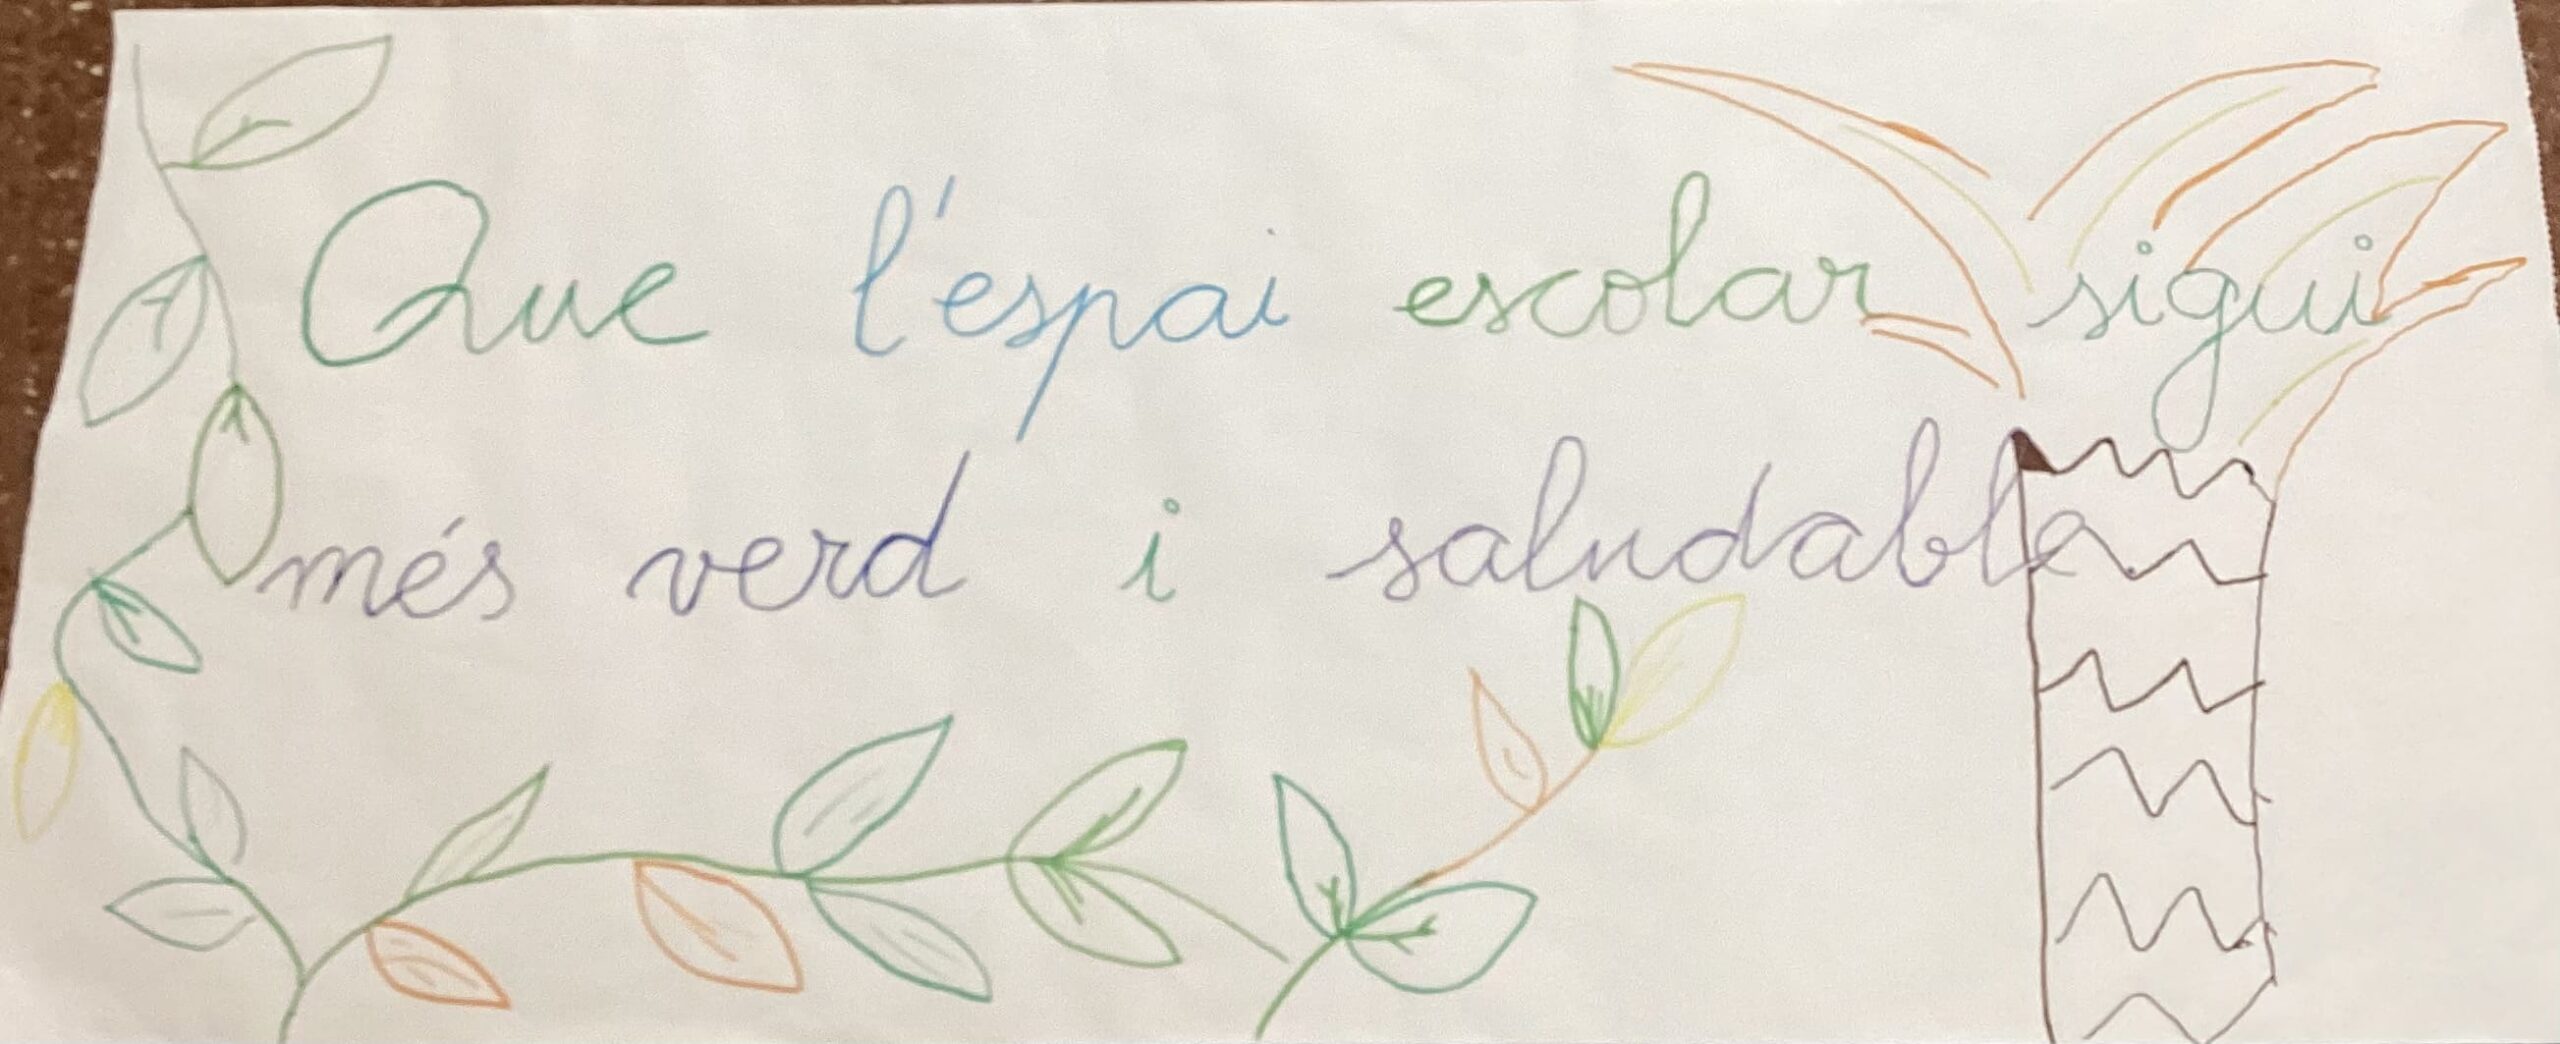 Que l'espai escolar sigui
més verd i saludable